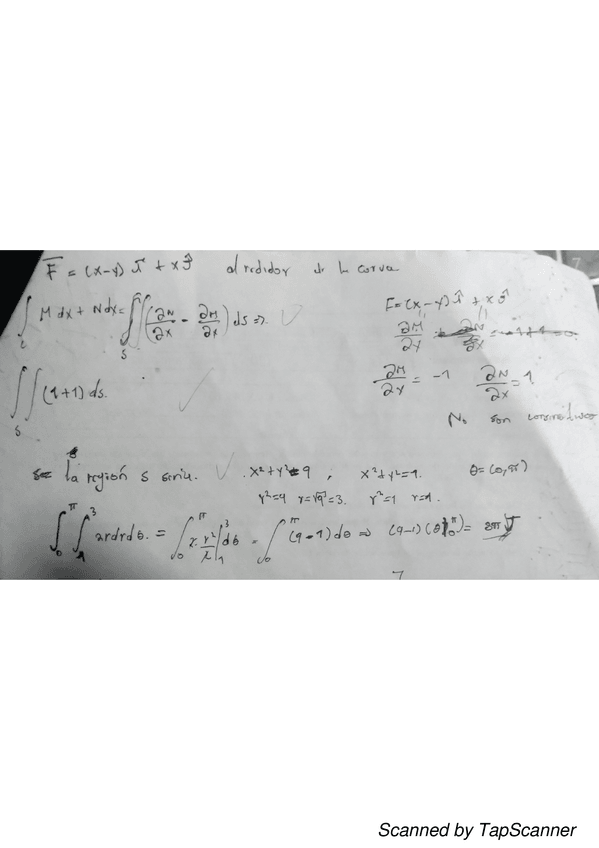 F = (x-y) î + x ĵ alrededor de la curva
∫_c M dx + N dx = ∬_S (∂N/∂x - ∂M/∂x) ds ⇒
F = (x-y) î + x ĵ
∂M/∂y ∂N/∂x
∬_S (1+1) ds.
∂M/∂y = -1 ∂N/∂x = 1
No son conservativos
la región S seria. x²+y²=9, x²+y²=1. θ=(0,π)
r²=9 r=√9=3. r²=1 r=1.
∫_0^π ∫_1^3 2r dr dθ. = ∫_0^π 2·r²/2 |_1^3 dθ = ∫_0^π (9-1) dθ ⇒ (9-1)(θ|_0^π) = 8π J
7
Scanned by TapScanner